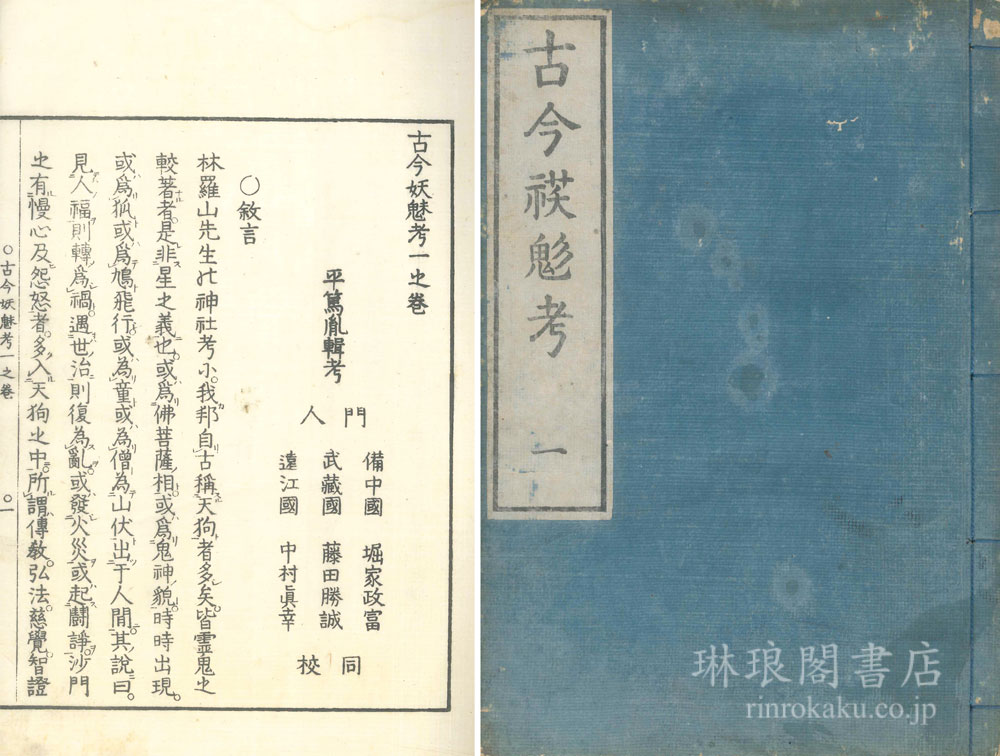 古今祅魅考 一
古今妖魅考一之卷
平篤胤輯考
門人
備中國 堀家政富
武藏國 藤田勝誠
遠江國 中村眞幸
同校
○敘言
林羅山先生の神社考小。我邦自古稱天狗者多矣。皆靈鬼之
較著者。是非星之義也。或爲佛菩薩相。或爲鬼神貌。時時出現。
或爲狐。或爲鳩飛行。或為童。或為僧。為山伏出于人間。其說曰。
見人福則轉爲禍。遇世治則復為亂。或發火災。或起鬪諍。沙門
之有慢心及怨怒者。多入天狗之中。所謂傳敎。弘法。慈覺。智證
○古今妖魅考一之卷
○一
琳琅閣書店
rinrokaku.co.jp